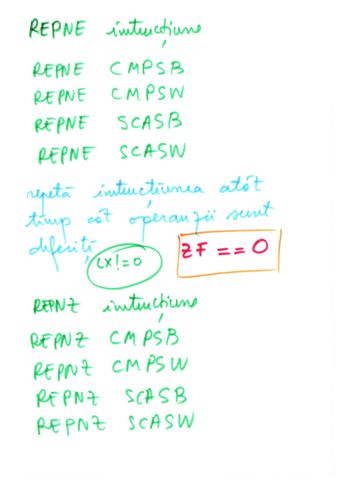 REPNE intrucțiune
REPNE CMPSB
REPNE CMPSW
REPNE SCASB
REPNE SCASW
repetă intrucțiunea atât
timp cât operanzii sunt
diferiți
CX!=0
ZF == 0
REPNZ intrucțiune
REPNZ CMPSB
REPNZ CMPSW
REPNZ SCASB
REPNZ SCASW